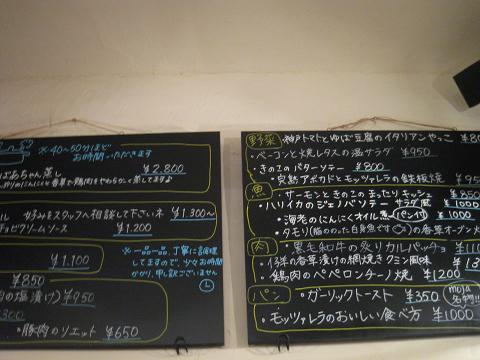 ※40~50分ほど
お時間いただきます
ばあちゃん蒸し ¥2.800
好みをスタッフへ相談して下さいネ ¥1.300~
チョビクリームソース ¥1.200
※一品一品、丁寧に調理
してますので、少々お時間
かかり、申し訳ございません
¥1.100
¥850
肉の塩漬け) ¥950
・豚肉のリエット ¥650
野菜 神戸トマトとゆば豆腐のイタリアンやっこ
・ベーコンと焼レタスの温サラダ ¥950
・きのこのバターソテー ¥800
・完熟アボカドとモッツァレラの鉄板焼
魚 ・サーモンときのこのまったりキッシュ ¥850
・ハリイカのジェノバソテー サラダ風 ¥1000
・海老のにんにくオイル煮(パン付) ¥1000
・タモリ(脂ののった白身魚です)の香草オーブン
肉 ・黒毛和牛の炙りカルパッチョ
・仔羊の香草漬けの網焼きクミン風味
・鶏肉のペペロンチーノ焼 ¥1200
パン ・ガーリックトースト ¥350 (moja名物!!)
・モッツァレラのおいしい食べ方 ¥1000